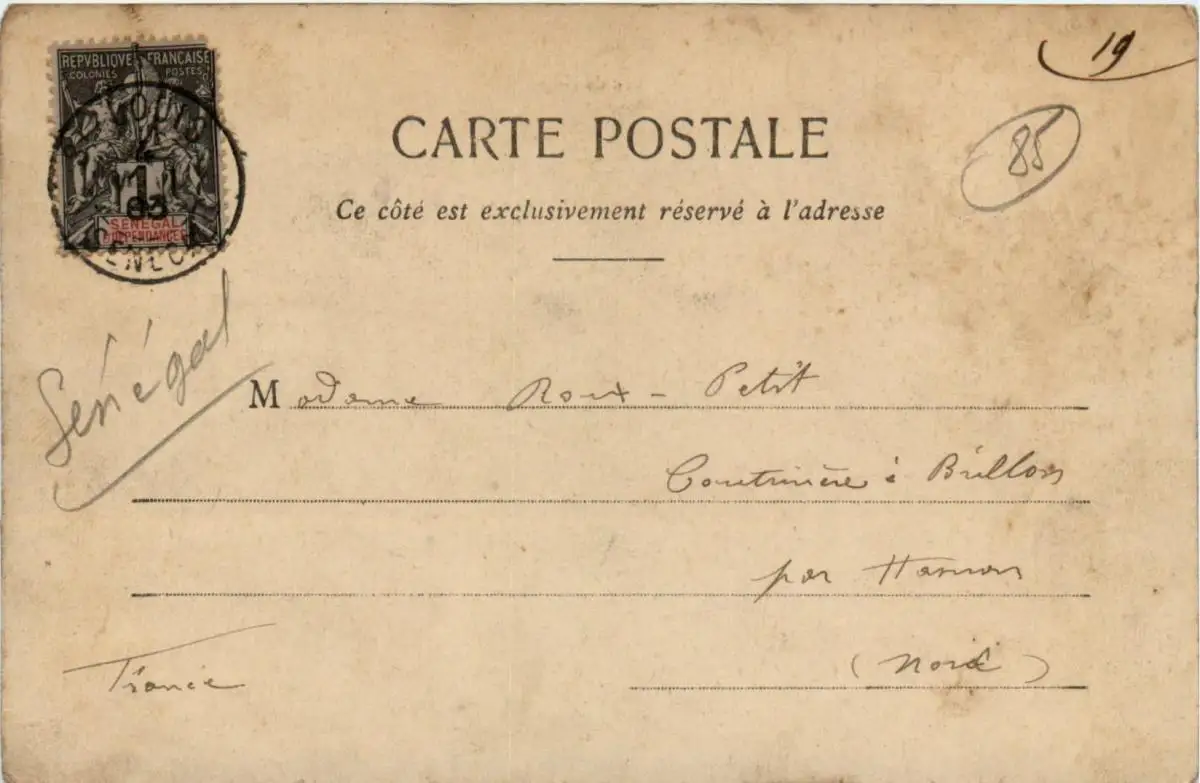 REPVBLIQVE FRANÇAISE
COLONIES POSTES
1
SÉNÉGAL
ET DÉPENDANCES
ST LOUIS
03
SÉNÉGAL
19
85
CARTE POSTALE
Ce côté est exclusivement réservé à l'adresse
Sénégal
Madame Roux-Petit
Couturière à Brillon
par Hasnon
(Nord)
France